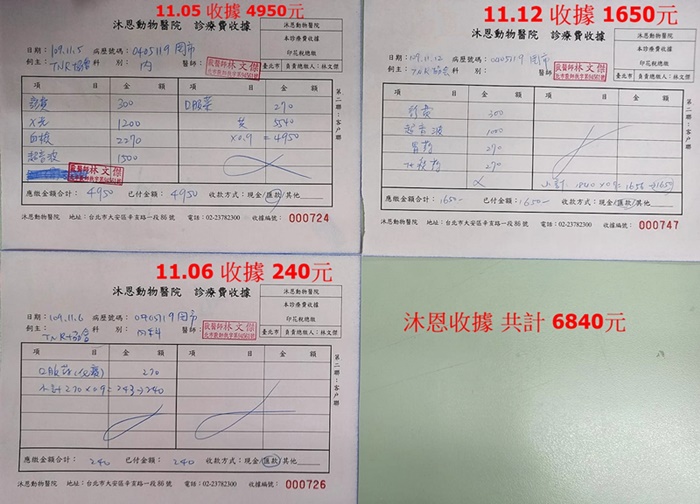 11.05 收據 4950元
沐恩動物醫院 診療費收據
沐恩動物醫院
本診療費收據
印花稅總繳
臺北市 負責總繳人:林文傑
日期:109.11.5 病歷號碼:0405119 周市
例主:TNR協會 科別:內 醫師:
獸醫師林文傑
項目 金額 項目 金額
診費 300 口服藥 270
X光 1200 共 5540
血檢 2270 ×0.9=4950
超音波 1500
獸醫師林文傑
第二聯:客戶聯
應繳金額合計:4950 已付金額:4950 收款方式:現金/匯款/其他
沐恩動物醫院 地址:台北市大安區辛亥路一段86號 電話:02-23782300 收據編號:000724
11.12 收據 1650元
沐恩動物醫院 診療費收據
沐恩動物醫院
本診療費收據
印花稅總繳
臺北市 負責總繳人:林文傑
日期:109.11.12 病歷號碼:0405119 周市
例主:TNR協會 科別: 醫師:
獸醫師林文傑
項目 金額 項目 金額
診費 300
超音波 1000
胃藥 270
270
小計: 1840×0.9=1656
第二聯:客戶聯
應繳金額合計:1650- 已付金額:1650- 收款方式:現金/匯款/其他
沐恩動物醫院 地址:台北市大安區辛亥路一段86號 電話:02-23782300 收據編號:000747
11.06 收據 240元
沐恩動物醫院 診療費收據
沐恩動物醫院
本診療費收據
印花稅總繳
臺北市 負責總繳人:林文傑
日期:109.11.6 病歷號碼:0405119 周市
例主:TNR協會 科別:內科 醫師:
獸醫師林文傑
項目 金額 項目 金額
口服藥 270
小計 270×0.9=243→240
第二聯:客戶聯
應繳金額合計:240 已付金額:240 收款方式:現金/匯款/其他
沐恩動物醫院 地址:台北市大安區辛亥路一段86號 電話:02-23782300 收據編號:000726
沐恩收據 共計 6840元